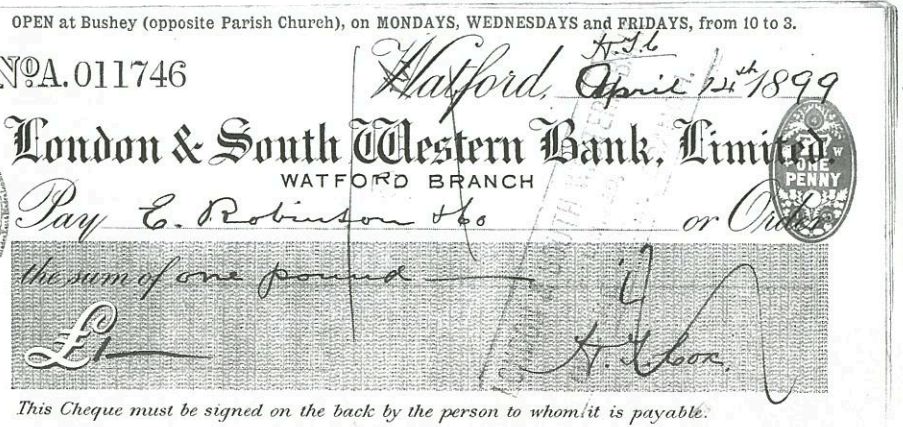 OPEN at Bushey (opposite Parish Church), on MONDAYS, WEDNESDAYS and FRIDAYS, from 10 to 3.
H.T.C
NºA.011746 Watford, April 14th 1899
London & South Western Bank, Limited.
WATFORD BRANCH
ONE
PENNY
Pay E. Robinson & Co or Order
the sum of one pound
£1
H. T. Cox.
This Cheque must be signed on the back by the person to whom it is payable.